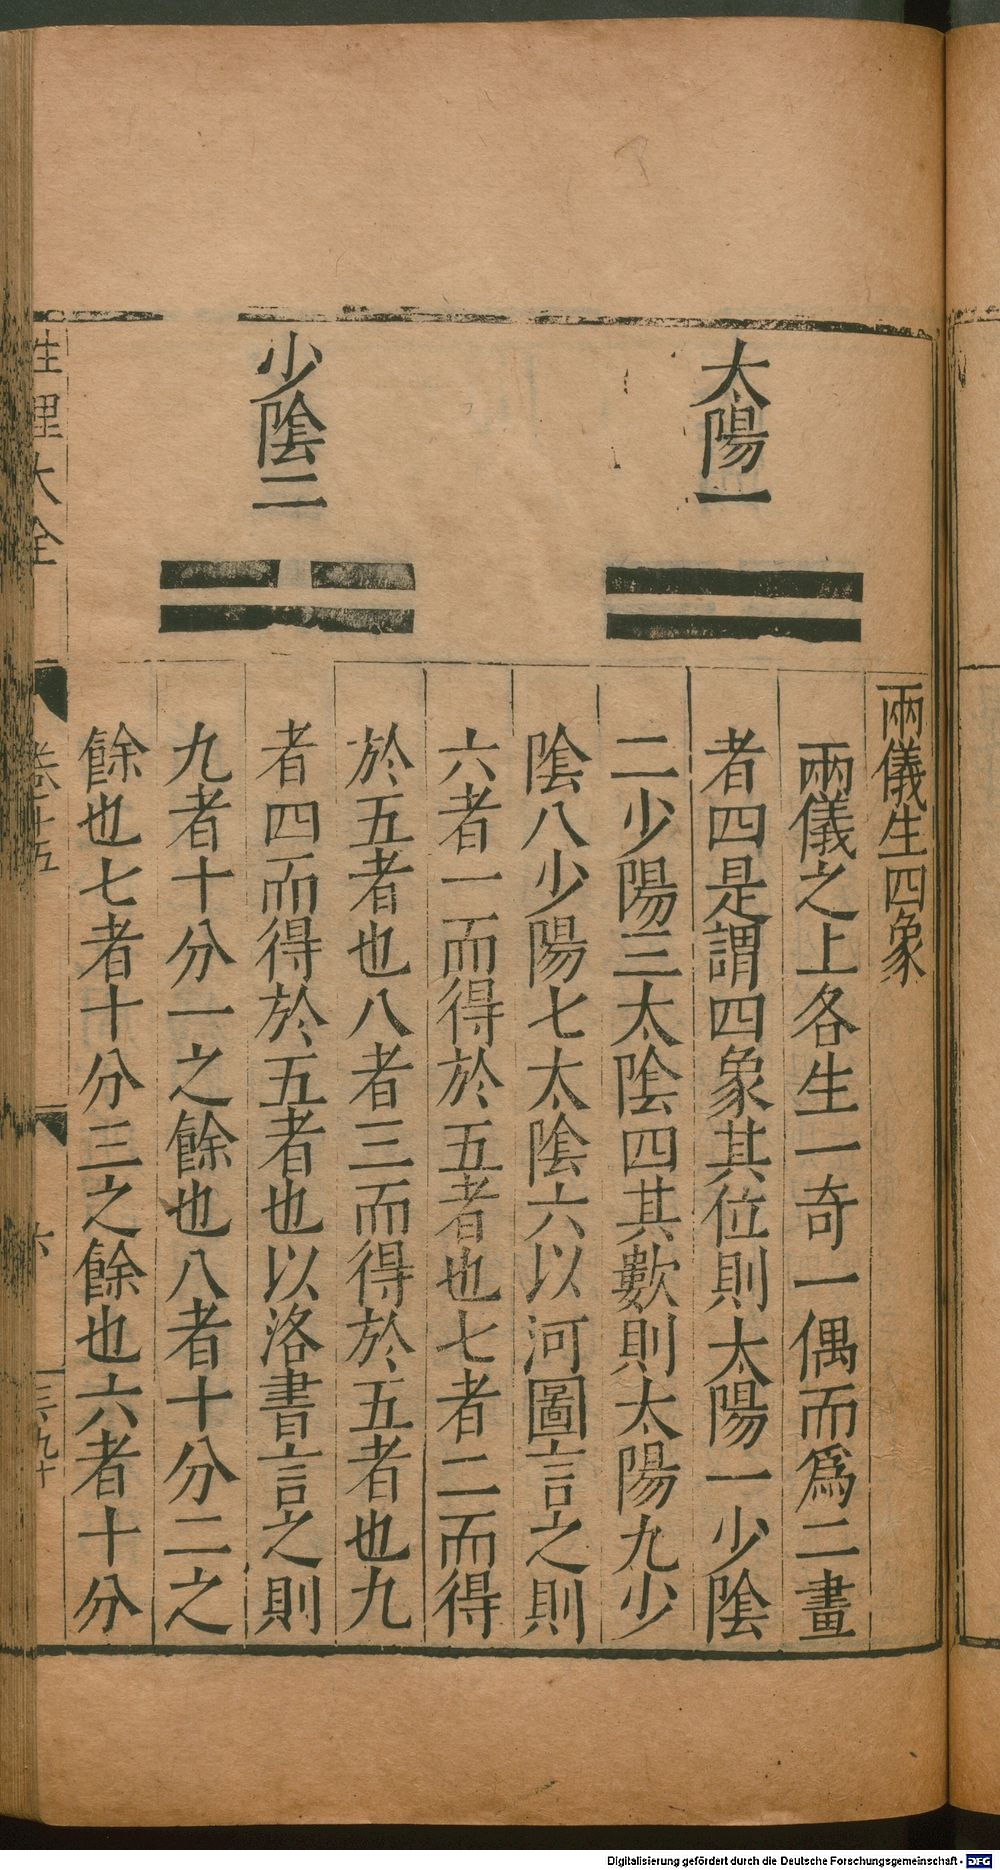 太陽一
少陰二
兩儀生四象
兩儀之上各生一奇一偶而爲二畫
者四是謂四象其位則太陽一少陰
二少陽三太陰四其數則太陽九少
陰八少陽七太陰六以河圖言之則
六者一而得於五者也七者二而得
於五者也八者三而得於五者也九
者四而得於五者也以洛書言之則
九者十分一之餘也八者十分二之
餘也七者十分三之餘也六者十分
性理大全
卷十五
六
Digitalisierung gefördert durch die Deutsche Forschungsgemeinschaft - DFG